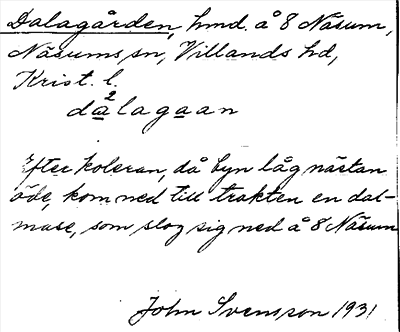 Dalagården, hmd. å 8 Näsum,
Näsums sn, Villands hd,
Krist. l.
da²lagaan
Efter koleran, då byn låg nästan
öde, kom ned till trakten en dal-
mase, som slog sig ned å 8 Näsum
John Svensson 1931